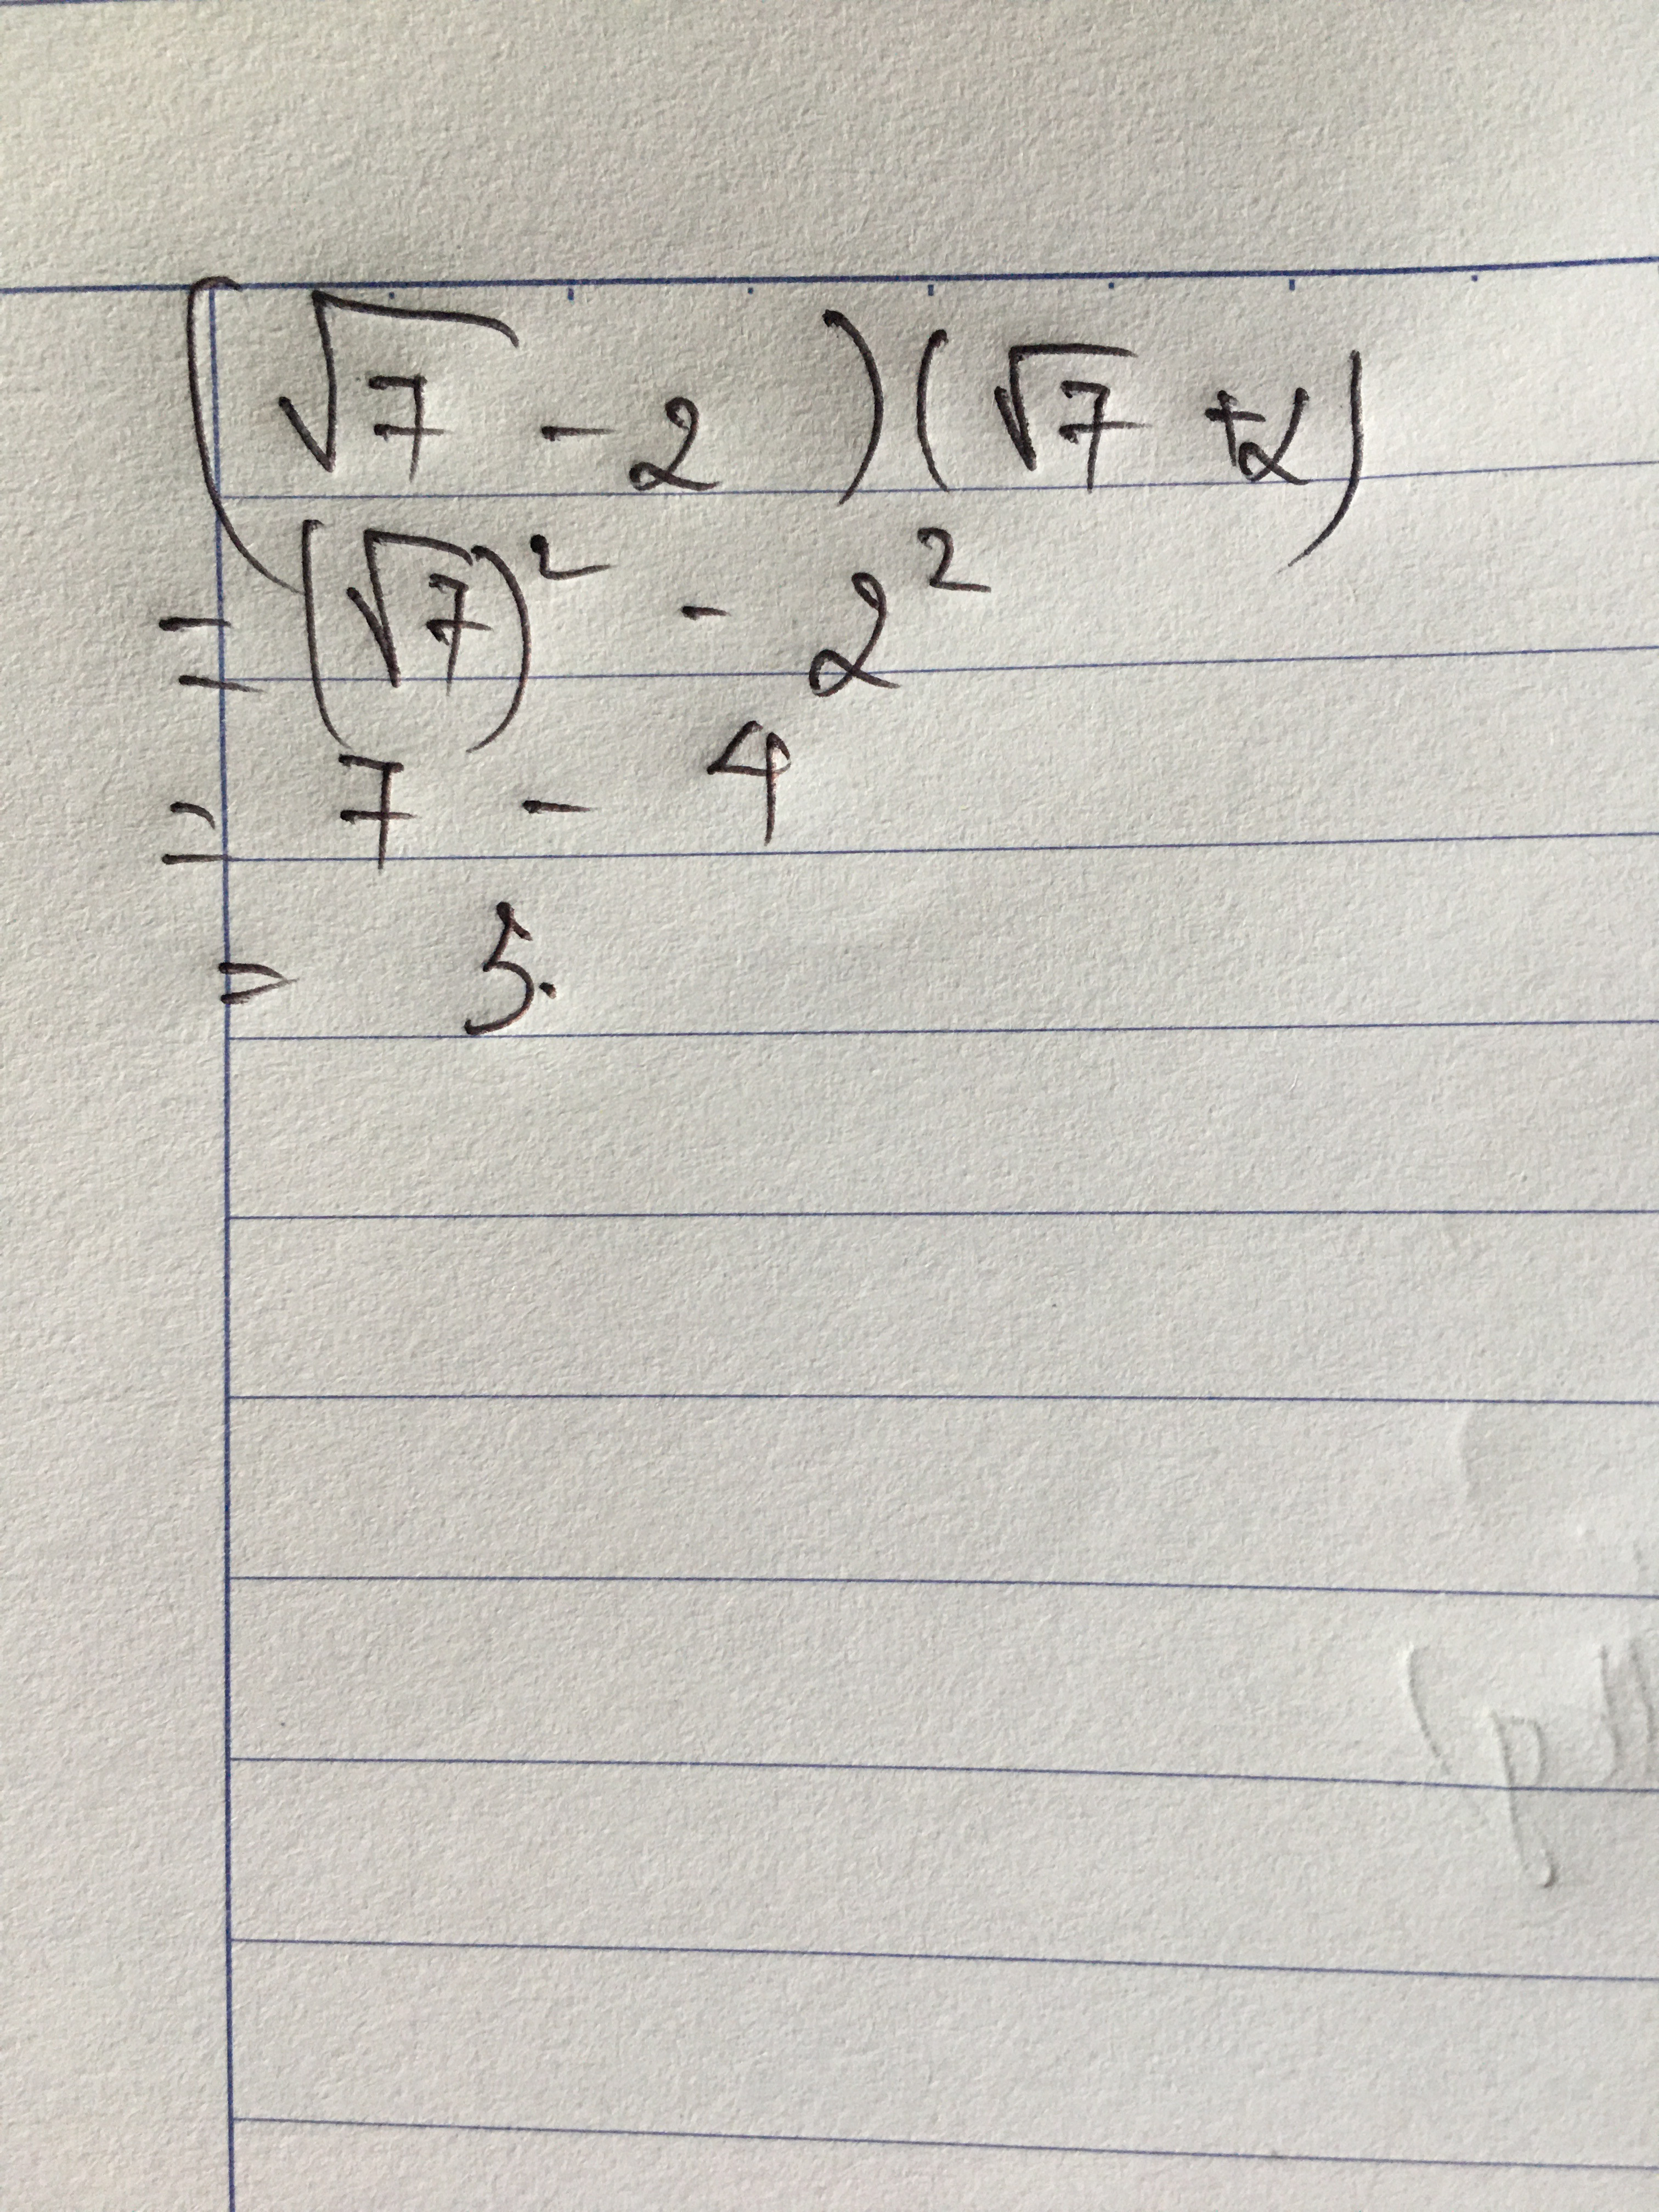 (√7 - 2)(√7 + 2)
= (√7)² - 2²
= 7 - 4
= 5.